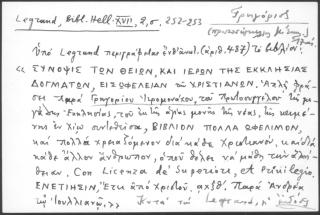 Legrand, Bibl. Hell. XVII, 2, σ. 252-253
Γρηγόριος
Ὑπὸ Legrand περιγράφεται ἐνθ' ἀνωτ. (ἀριθ. 487) τὸ βιβλίον:
« ΣΥΝΟΨΙΣ ΤΩΝ ΘΕΙΩΝ, ΚΑΙ ΙΕΡΩΝ ΤΗΣ ΕΚΚΛΗΣΙΑΣ
ΔΟΓΜΑΤΩΝ, ΕΙΣ ΩΦΕΛΕΙΑΝ ΤΩΝ ΧΡΙΣΤΙΑΝΩΝ. Ἁπλῇ φράσει
παρὰ Γρηγορίου Ἱερομονάχου, τοῦ Πρωτοσυγγέλου τῆς με-
γάλης Ἐκκλησίας, τοῦ ἐκ τῆς ἁγίας μονῆς τῆς νέας, τῆς κειμέ-
νης ἐν Χίῳ συντεθεῖσα, ΒΙΒΛΙΟΝ ΠΟΛΛΑ ΩΦΕΛΙΜΟΝ,
καὶ πολλὰ χρειαζόμενον διὰ κάθε Χριστιανόν, καὶ διὰ
κάθε ἄλλον ἄνθρωπον, ὁποῦ θέλει νὰ μάθῃ τὴν ἀλή-
θειαν. Con Licenza de' Superiori, et Privilegio.
ΕΝΕΤΙΗΣΙΝ, Ἔτει ἀπὸ Χριστοῦ. αχλε΄. Παρὰ Ἀνδρέᾳ
τῷ Ἰουλιανῷ.» Κατὰ τὸν Legrand, ἡ ἔκδοσις